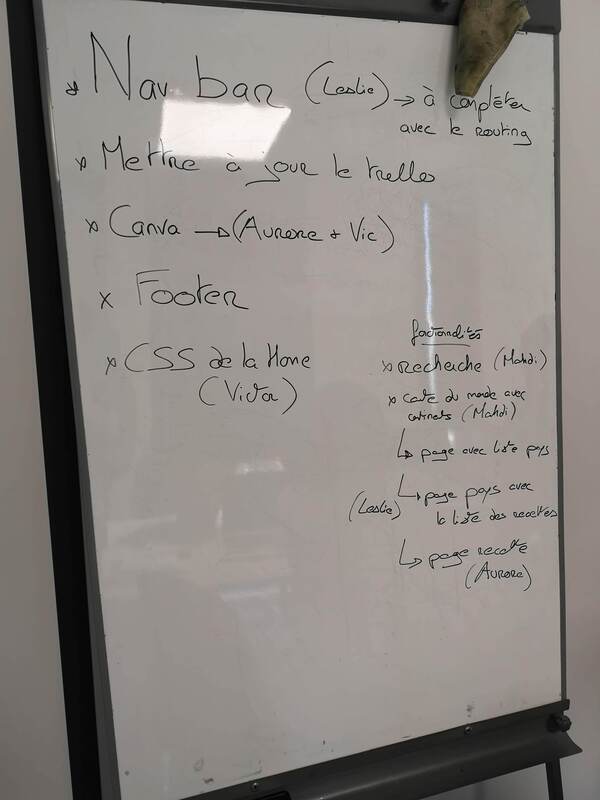 * Nav bar (Leslie) → à compléter
avec le routing
x Mettre à jour le trello
x Canva → (Aurore + Vic)
x Footer
x CSS de la Home
(Victor)
fonctionnalités
x Recherche (Mahdi)
x carte du monde avec
continents (Mahdi)
↳ page avec liste pays
↳ page pays avec
la liste des recettes
(Leslie)
↳ page recette
(Aurore)